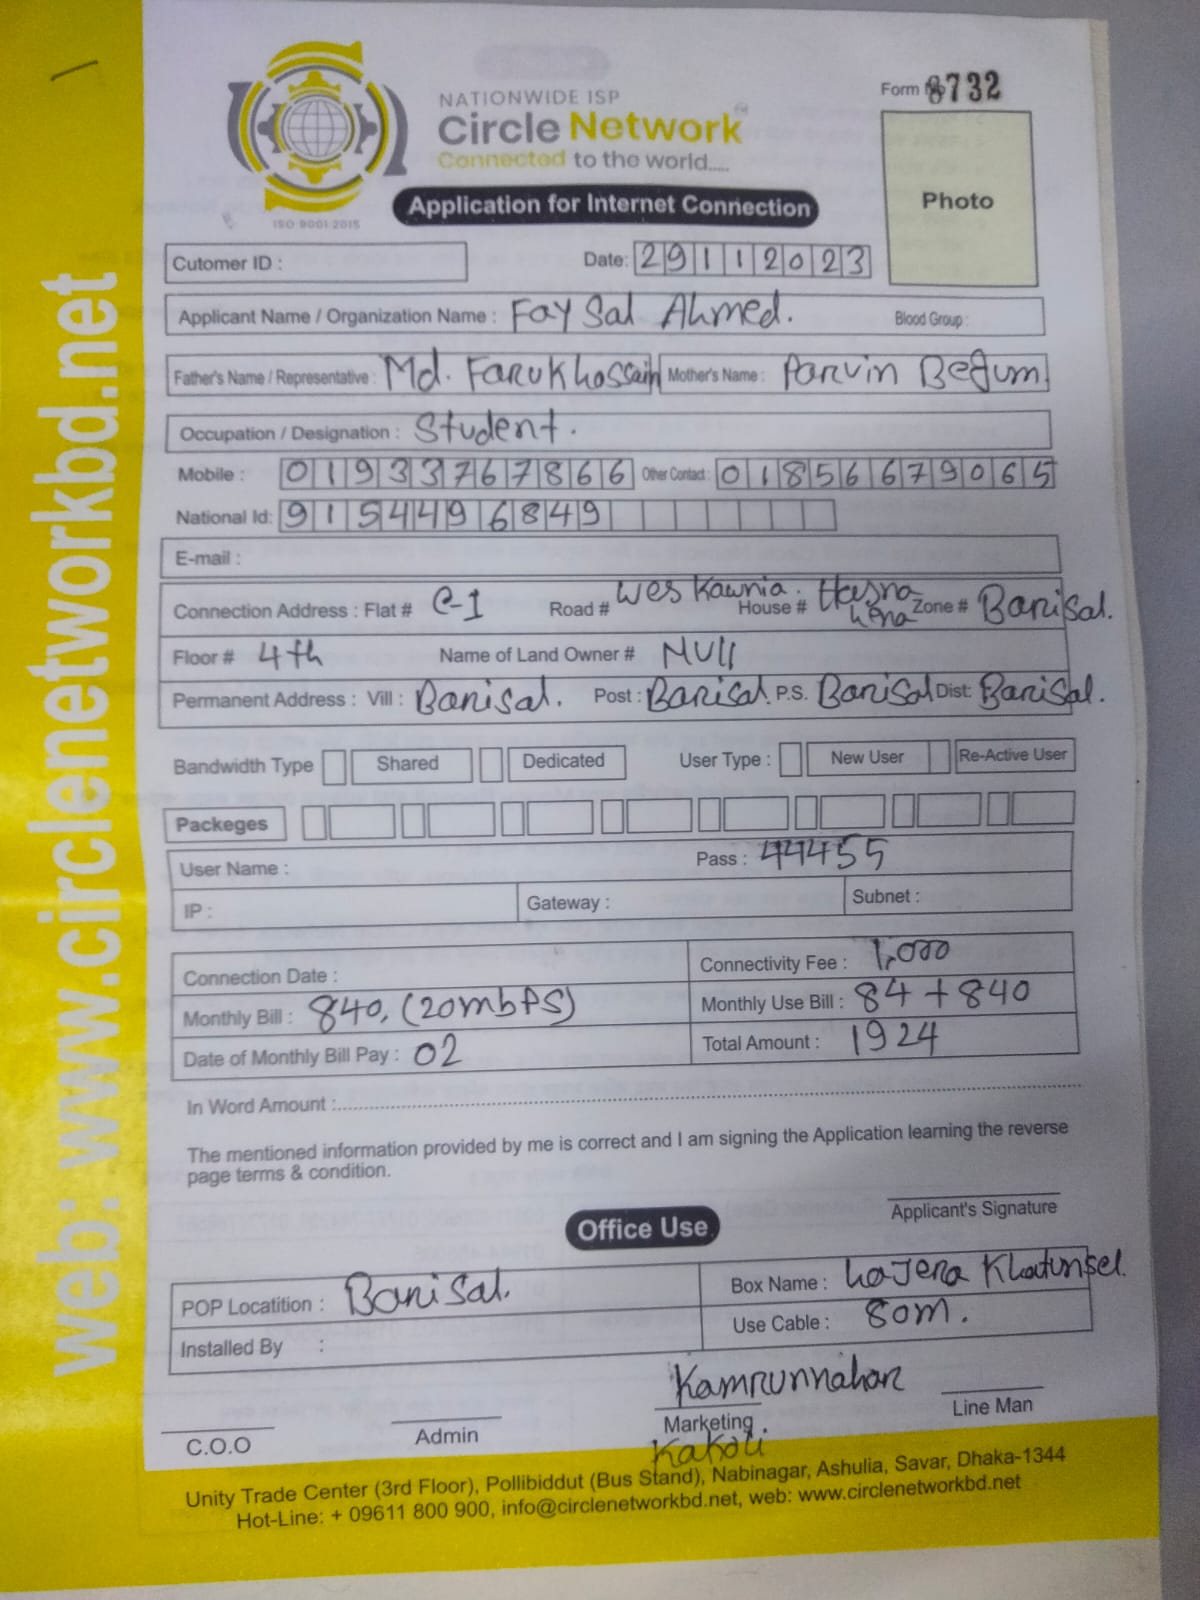 NATIONWIDE ISP
Circle Network
Connected to the world.....
ISO 9001:2015
Form 8732
Photo
Application for Internet Connection
Cutomer ID :
Date: 29112023
Applicant Name / Organization Name : Faysal Ahmed. Blood Group :
Father's Name / Representative : Md. Faruk hossain Mother's Name : Parvin Begum
Occupation / Designation : Student.
Mobile : 01933767866 Other Contact : 01856679065
National Id: 9154496849
E-mail :
Connection Address : Flat # C-1 Road # Wes Kawnia. House # Hasna hena Zone # Barisal.
Floor # 4th Name of Land Owner # Null
Permanent Address : Vill : Barisal. Post : Barisal. P.S. Barisal Dist: Barisal.
Bandwidth Type Shared Dedicated User Type : New User Re-Active User
Packeges
User Name : Pass : 44455
IP : Gateway : Subnet :
Connection Date : Connectivity Fee : 1,000
Monthly Bill : 840, (20mbPS) Monthly Use Bill : 84 + 840
Date of Monthly Bill Pay : 02 Total Amount : 1924
In Word Amount :
The mentioned information provided by me is correct and I am signing the Application learning the reverse
page terms & condition.
Applicant's Signature
Office Use
POP Locatition : Barisal. Box Name : hajera Khatun
Installed By : Use Cable : 80m.
Kamrunnahar
C.O.O Admin Marketing Line Man
Kakoli
Unity Trade Center (3rd Floor), Pollibiddut (Bus Stand), Nabinagar, Ashulia, Savar, Dhaka-1344
Hot-Line: + 09611 800 900, info@circlenetworkbd.net, web: www.circlenetworkbd.net
web: www.circlenetworkbd.net